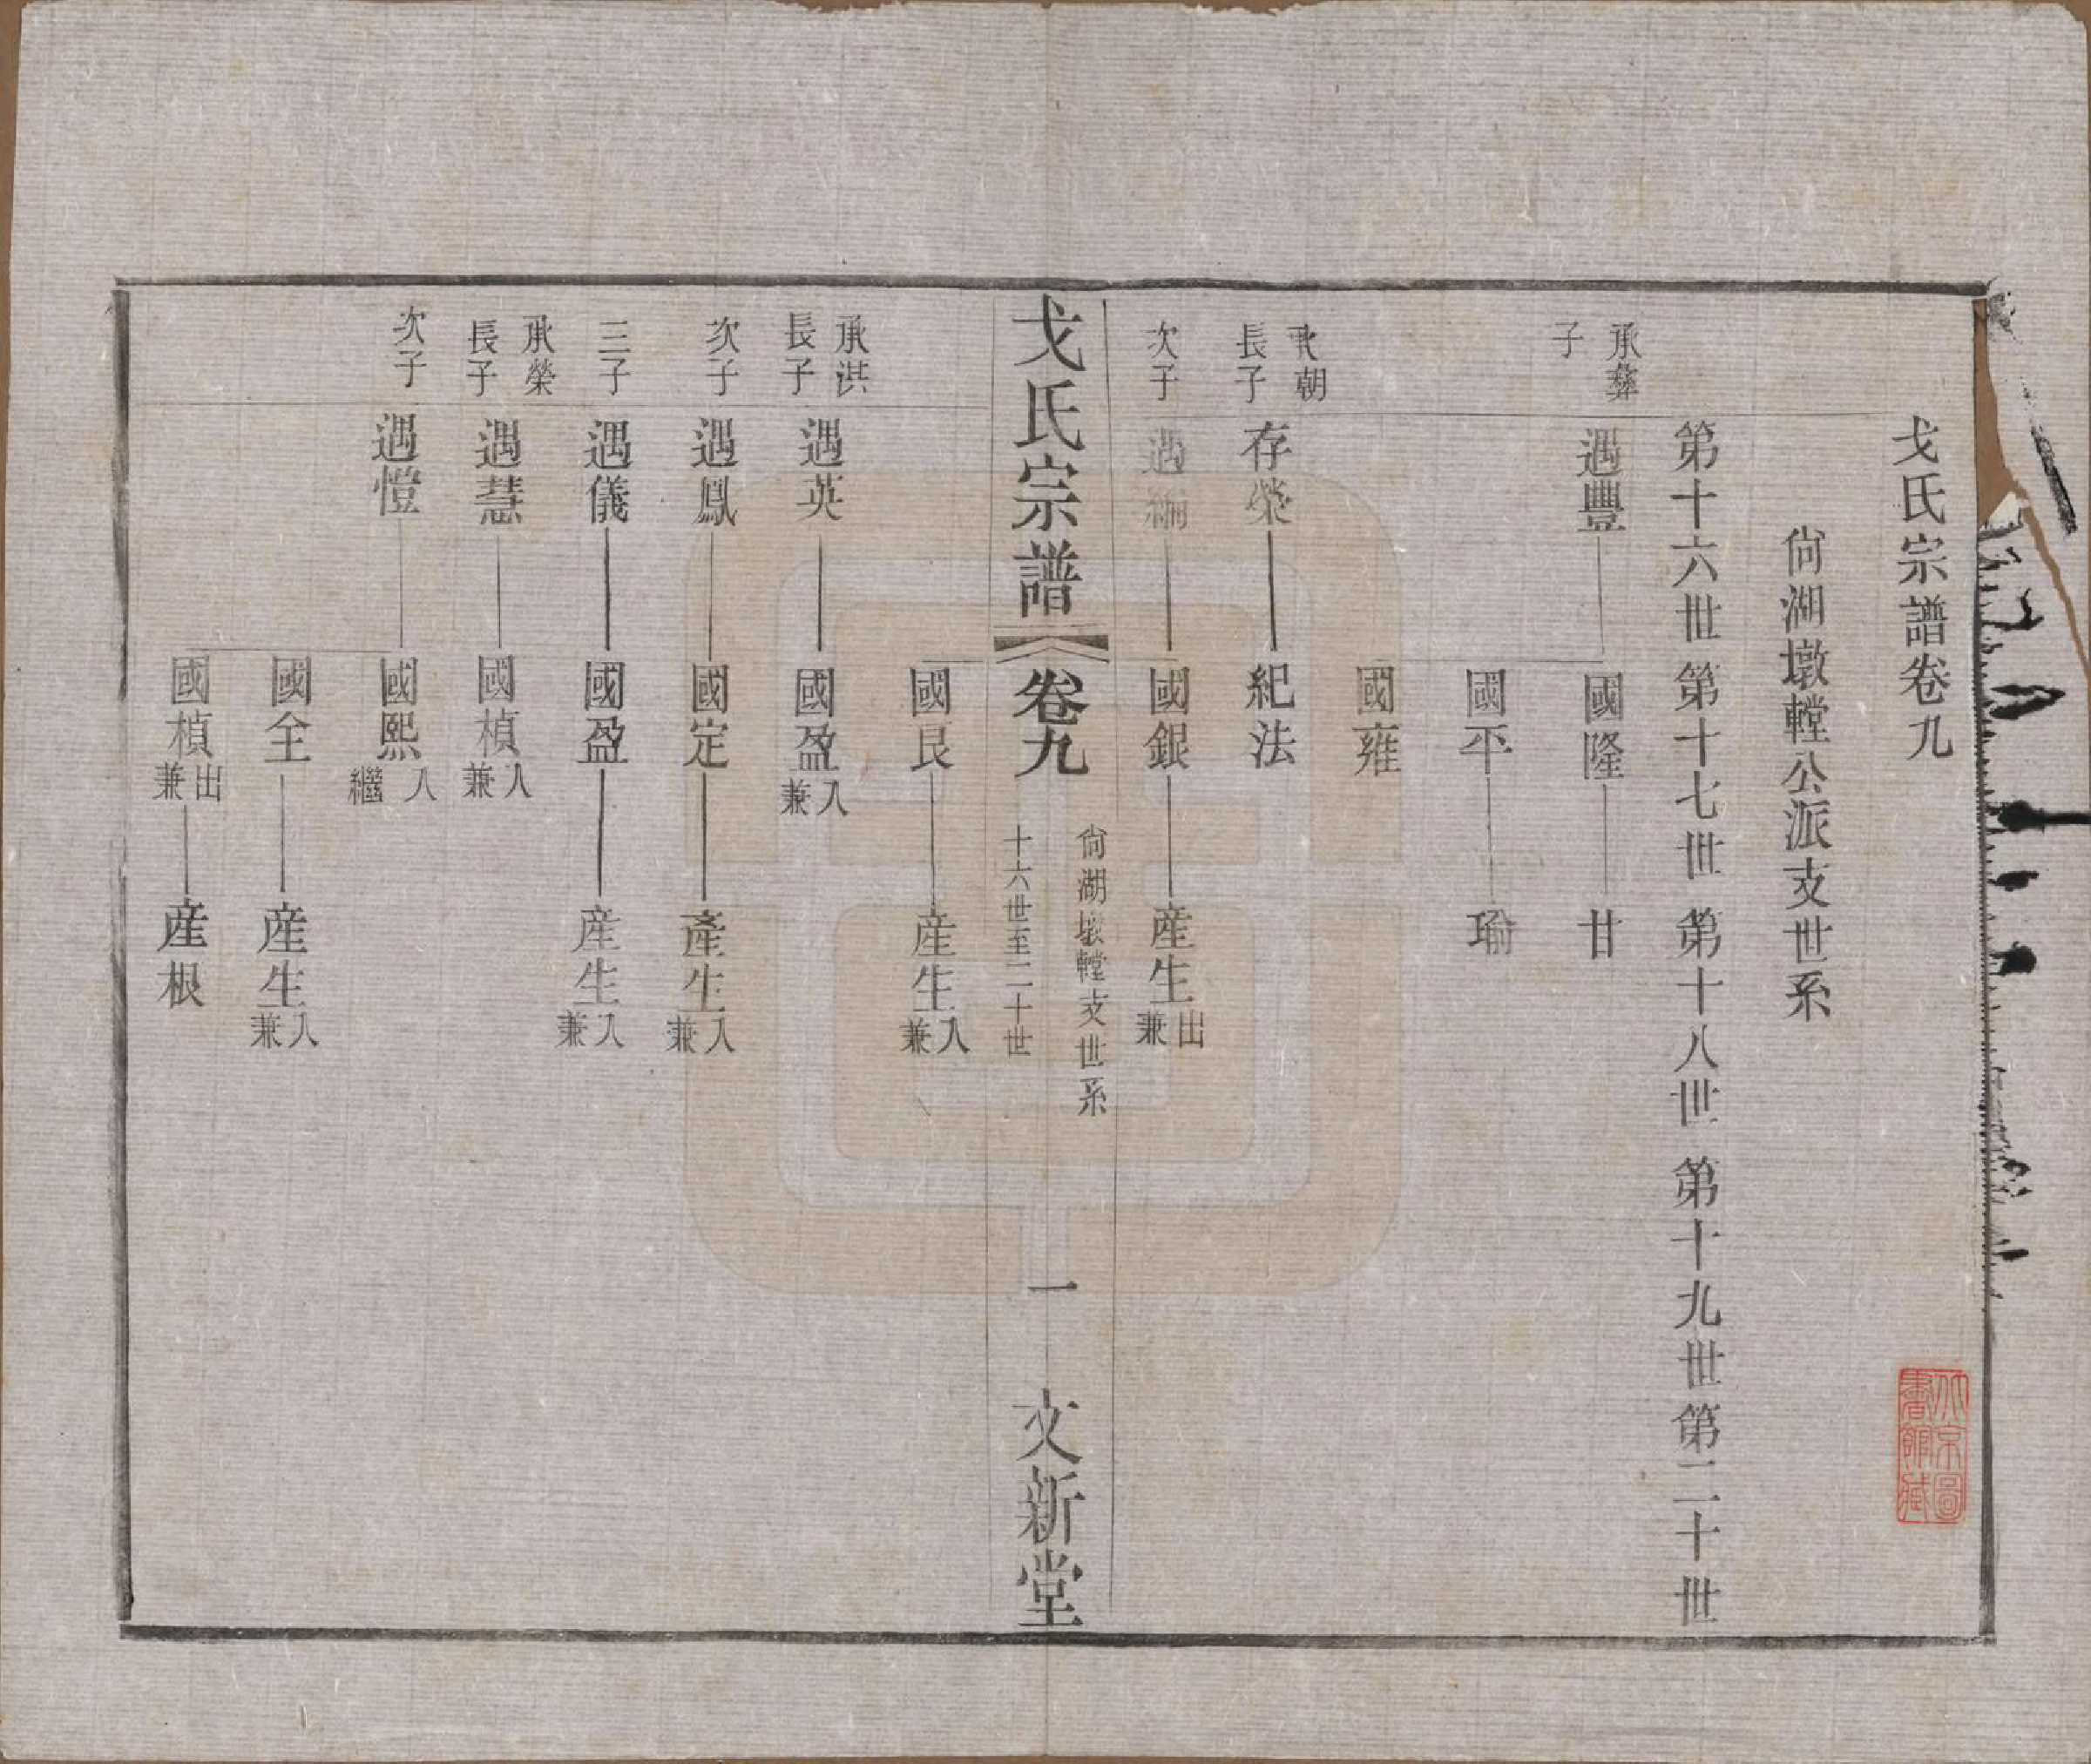 戈氏宗譜卷九
尙湖墩轋公派支世系
第十六世 第十七世 第十八世 第十九世 第二十世
承彝
子
遇豐 國隆 廿
國平 瑜
國雍
承朝
長子 存榮 紀法
次子 遇 國銀 産生 出兼
戈氏宗譜 卷九 尙湖墩轋支世系 十六世至二十世 一 文新堂
國良 産生 入兼
承洪
長子 遇英 國盈 入兼
次子 遇鳳 國定 產生 入兼
三子 遇儀 國盈 産生 入兼
承榮
長子 遇慧 國楨 入兼
次子 遇愷 國熙 入繼
國全 産生 入兼
國楨 出兼 産根
北京圖書館藏